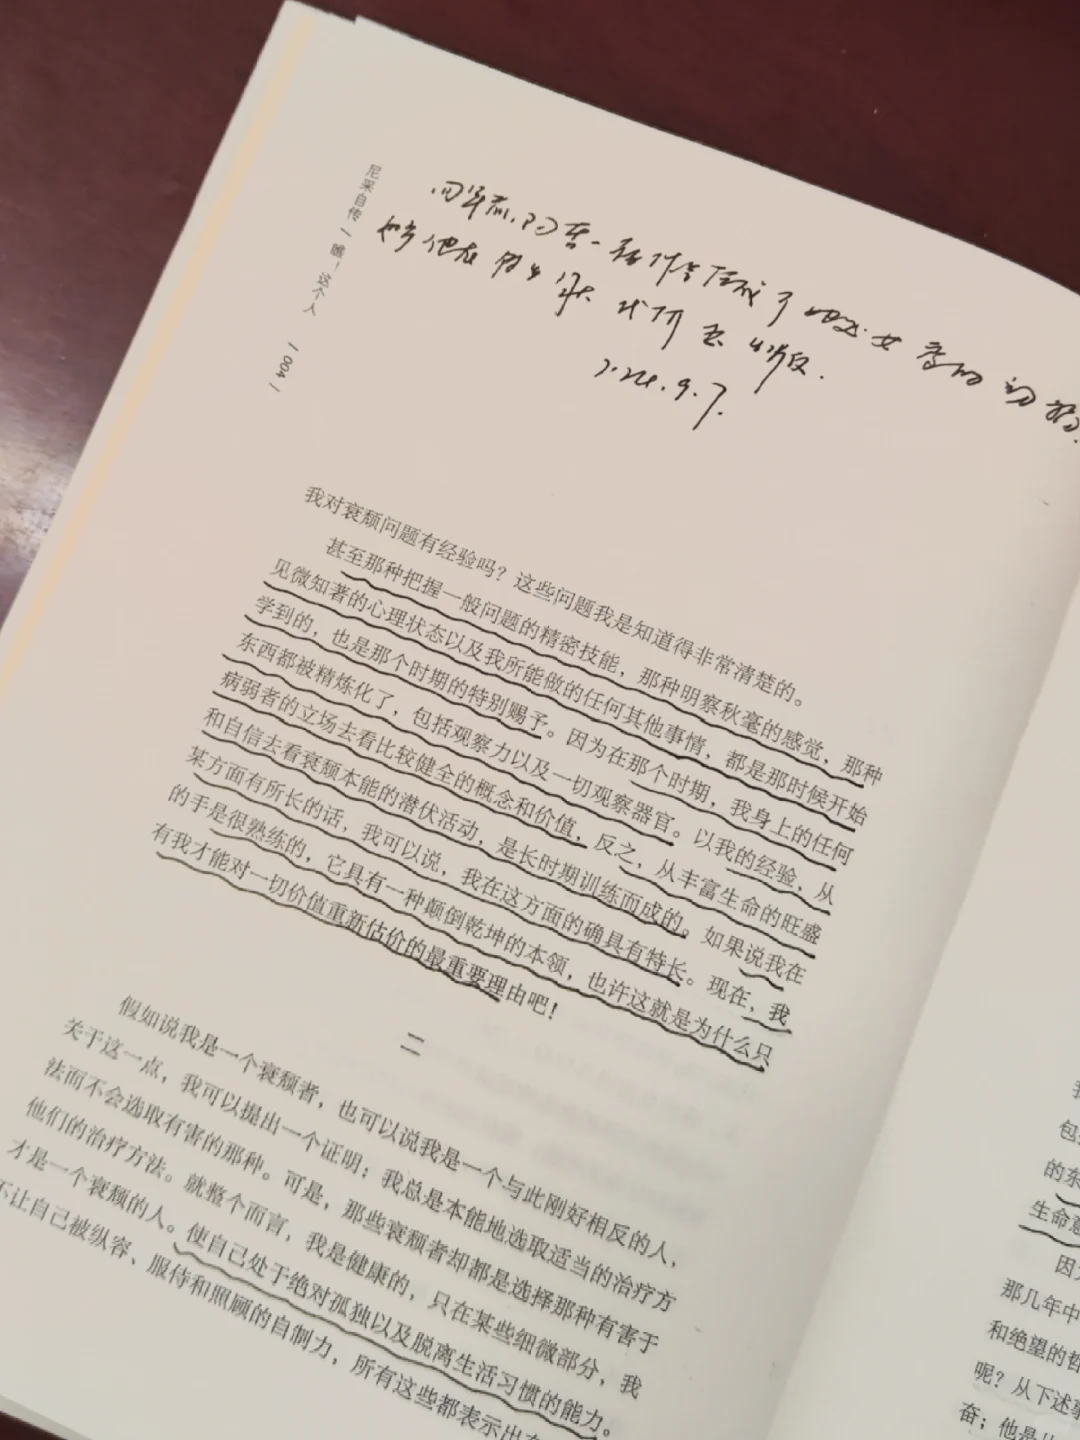 尼采自传——瞧！这个人
/ 004 /
2024.9.7.
我对衰颓问题有经验吗？这些问题我是知道得非常清楚的。
甚至那种把握一般问题的精密技能，那种明察秋毫的感觉，那种
见微知著的心理状态以及我所能做的任何其他事情，都是那时候开始
学到的，也是那个时期的特别赐予。因为在那个时期，我身上的任何
东西都被精炼化了，包括观察力以及一切观察器官。以我的经验，从
病弱者的立场去看比较健全的概念和价值，反之，从丰富生命的旺盛
和自信去看衰颓本能的潜伏活动，是长时期训练而成的。如果说我在
某方面有所长的话，我可以说，我在这方面的确具有特长。现在，我
的手是很熟练的，它具有一种颠倒乾坤的本领，也许这就是为什么只
有我才能对一切价值重新估价的最重要理由吧！
二
假如说我是一个衰颓者，也可以说我是一个与此刚好相反的人，
关于这一点，我可以提出一个证明：我总是本能地选取适当的治疗方
法而不会选取有害的那种。可是，那些衰颓者却都是选择那种有害于
他们的治疗方法。就整个而言，我是健康的，只在某些细微部分，我
才是一个衰颓的人。使自己处于绝对孤独以及脱离生活习惯的能力。
不让自己被纵容、服侍和照顾的自制力，所有这些都表示出
包
的东
生命意
因
那几年中
和绝望的哲
呢？从下述事
奋；他是